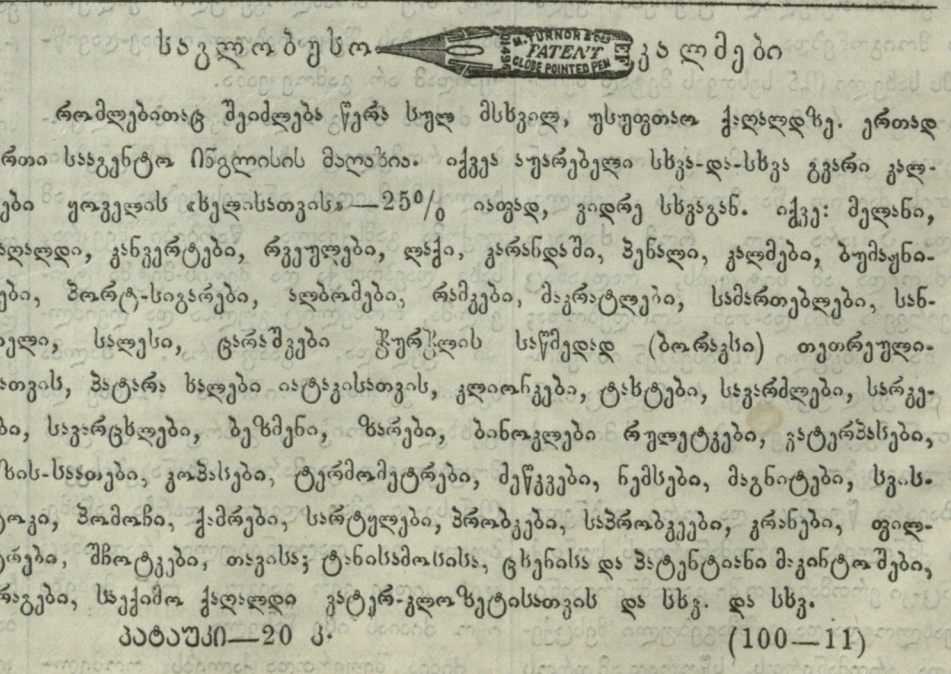 საგლობუსო H. TURNOR & Co's PATENT GLOBE POINTED PEN EF კალმები
რომლებითაც შეიძლება წერა სულ მსხვილ, უსუფთაო ქაღალდზე. ერთად
რთი სააგენტო ინგლისის მაღაზია. იქვეა აუარებელი სხვა-და-სხვა გვარი კალ-
ები ყოველის «ხელისათვის»—25% იაფად, ვიდრე სხვაგან. იქვე: მელანი,
აღალდი, კანვერტები, რვეულები, ლაქი, კარანდაში, პენალი, კალმები, ბუმაჟნი-
ები, პორტ-სიგარები, ალბომები, რამკები, მაკრატლები, სამართებლები, სან-
ელი, სალესი, ცარაშვები ჭურჭლის საწმედად (ბორაქსი) თეთრეული-
ათვის, პატარა ხალები იატაკისათვის, კლიონკები, ტახტები, სავარძლები, სარკე-
ბი, სავარცხლები, ბეზმენი, ზარები, ბინოკლები რულეტკები, კატერპასები,
ზის-საათები, კოპასები, ტერმომეტრები, მეწკვები, ჩემსები, მაგნიტები, სვის-
ტოკი, პომოჩი, ქამრები, სარტყლები, პრობკები, საპრობკეები, კრანები, ფილ-
ტრები, შჩოტკები, თავისა; ტანისამოსისა, ცხენისა და პატენტიანი მაკინტოშები,
რაგები, საექიმო ქაღალდი ვატერ-კლოზეტისათვის და სხვ. და სხვ.
პატაუკი—20 კ. (100—11)